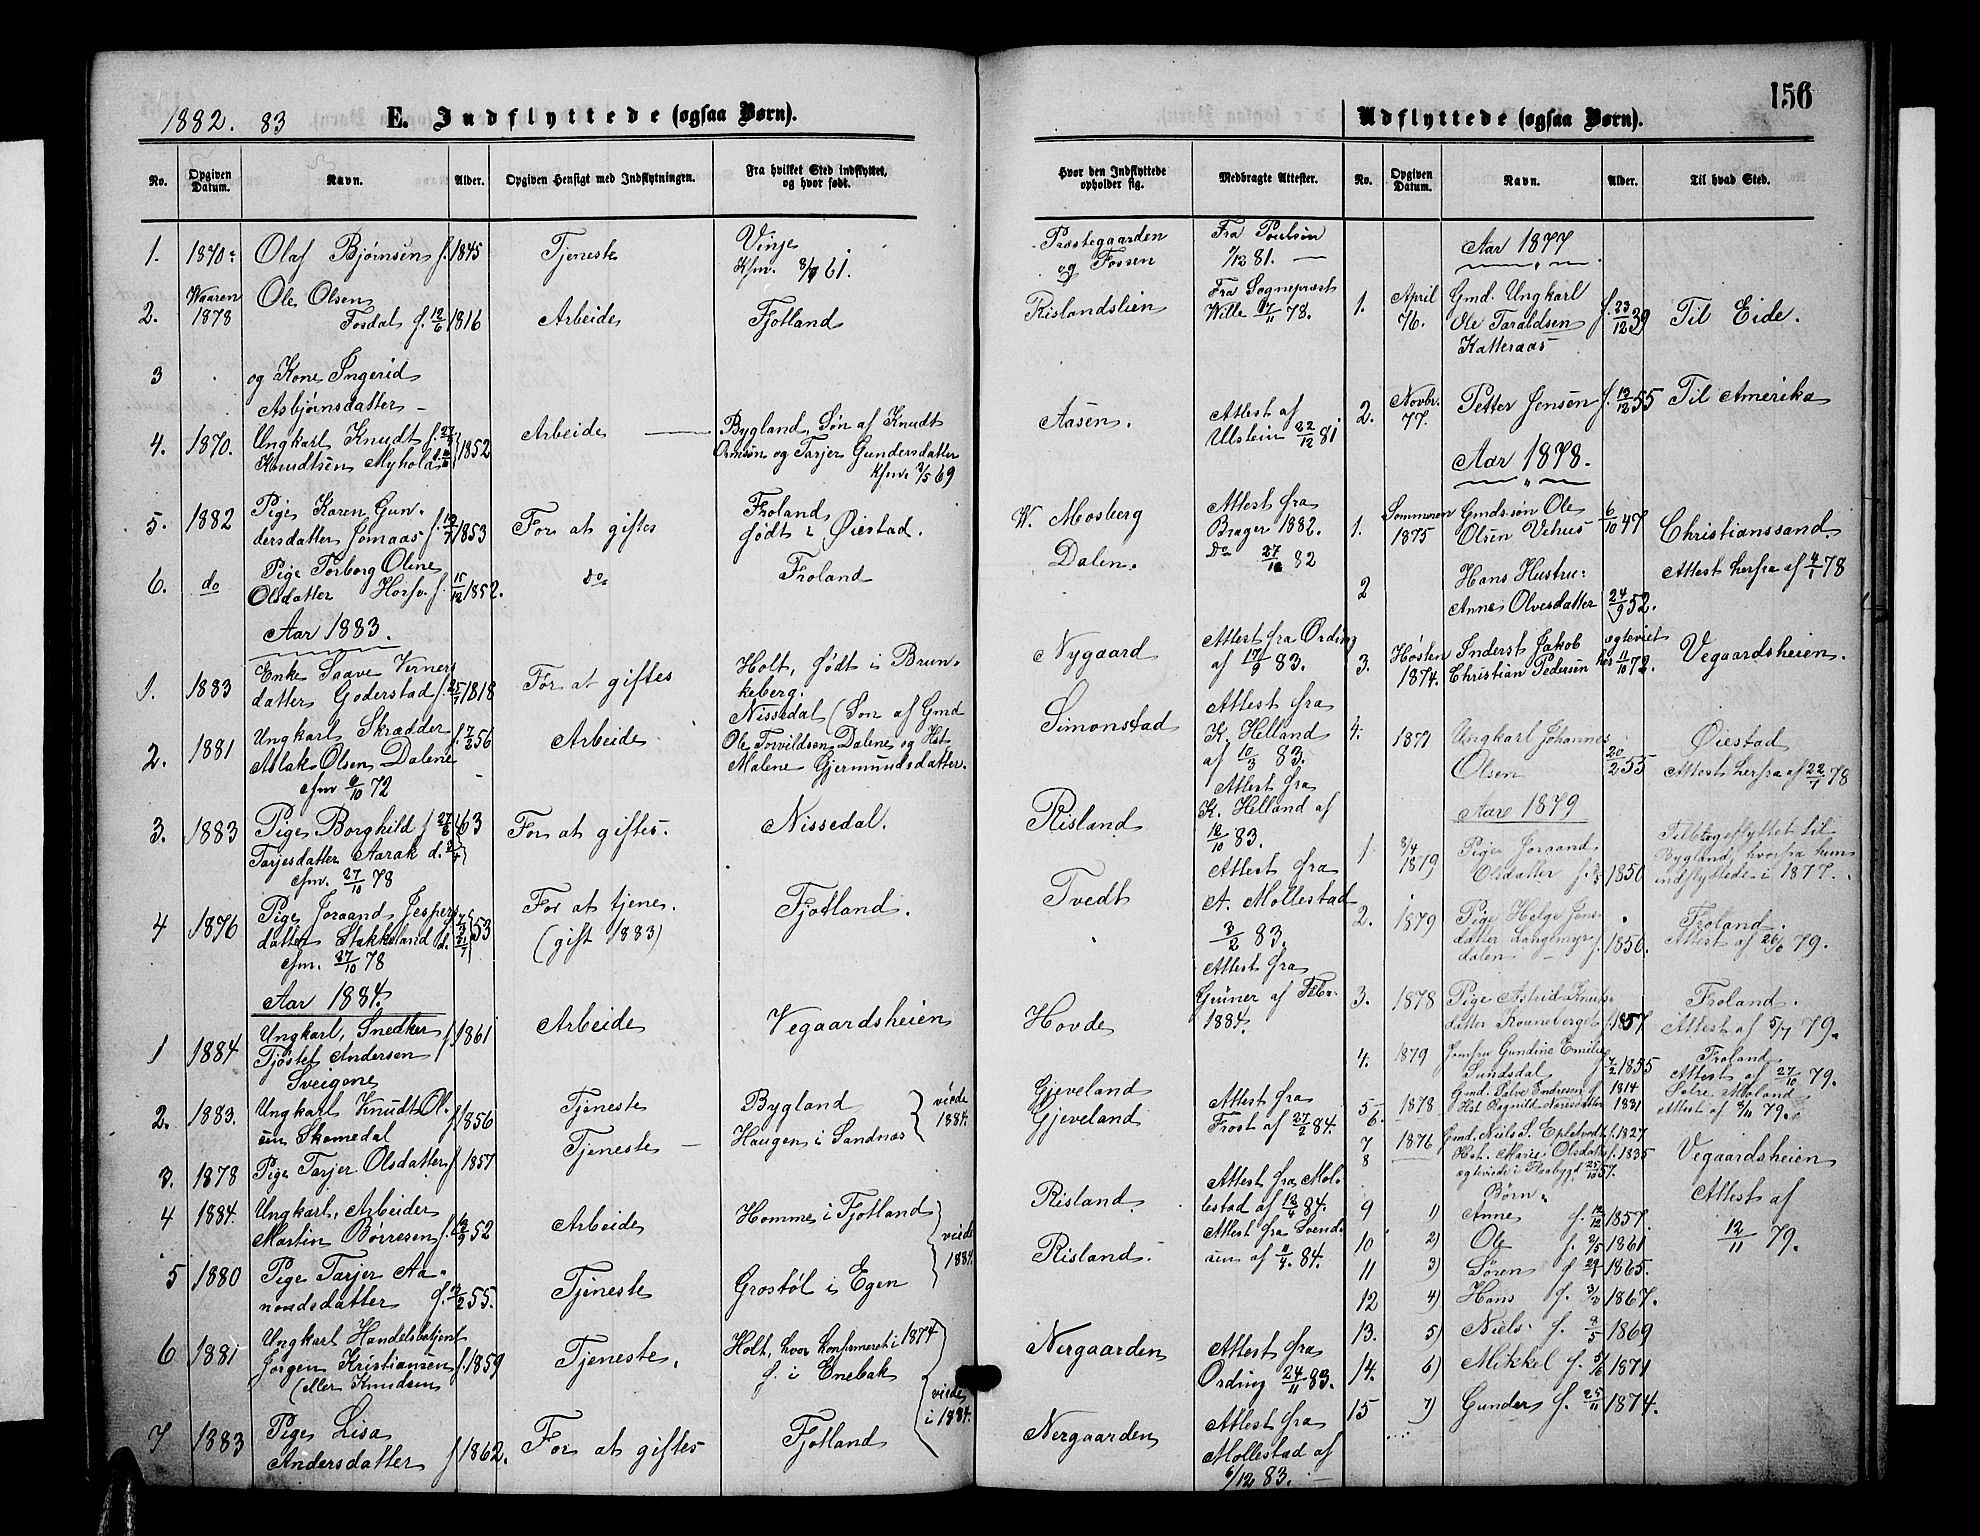 1882. 83
E. Indflyttede (ogsaa Børn).
No. Opgiven Datum. Navn. Alder. Opgiven Hensigt med Indflytningen. Fra hvilket Sted indflyttet, og hvor født.
1. 1870: Olaf Bjørnsen f. 1845 Tjeneste Vinje
Kfm. 61.
2. Vaaren 1878 Ole Olsen
Fosdal f. 12/6 1816 Arbeide Fjotland
3 og Kone Ingerid
Asbjørnsdatter
4. 1870. Ungkarl Knudt f. 1852 Arbeide Bygland, Søn af Knudt
Knudtsen Myhold Ormsøn og Tarjer Gundersdatter
Kfm. 2/5 69
5. 1882 Pige Karen Gun-
dersdatter Jomaas f. 1853 For at giftes Froland
født i Øiestad.
6. do Pige Torborg Oline
Olsdatter Horsv. f. 15/12 1852. Do Froland
Aar 1883.
1. 1883 Enke Saave Verners
datter Goderstad f. 1818 For at giftes Holt, født i Brun-
keberg.
2. 1881 Ungkarl Skrædder
Aslak Olsen Dalene f. 7/2 56 Arbeide Nissedal (Søn af Gmd
Ole Torvildsen Dalene og Hst.
Malene Gjermundsdatter.
cfm 6/10 72
3. 1883 Pige Borghild f. 63
Tarjesdatter Aarak d. For at giftes. Nissedal.
cfm. 27/10 78
4 1876 Pige Joraand Jespers
datter Stakkeland d. 53 For at tjene.
(gift 1883) Fjotland.
cfm. 27/10 78
Aar 1884.
1 1884 Ungkarl, Snedker f. 1861
Tjøstel Andersen
Sveigene Arbeide Vegaardsheien
2. 1883. Ungkarl Knudt Ol-
sen Skomedal f. 1856 Tjeneste Bygland viede 1884.
3. 1878 Pige Tarjer Olsdatter f. 1857 Tjeneste Haugen i Sandnæs
4 1884. Ungkarl, Arbeider
Martin Børresen f. 12/9 52 Arbeide Homme i Fjotland viede 1884.
5 1880 Pige Tarjer Aa-
nondsdatter f. 55. Tjeneste Grostøl i Egen
6 1881 Ungkarl Handelsbetjent
Jørgen Kristiansen f. 1859
(eller Knudsen Tjeneste, Holt, hvor konfirmeret i 1874
f. i Enebak viede i 1884.
7 1883 Pige Lisa
Andersdatter f. 1862. For at giftes Fjotland
156
Udflyttede (ogsaa Børn).
Hvor den Indflyttede opholder sig. Medbragte Attester. No. Opgiven Datum. Navn. Alder. Til hvad Sted.
Præstegaarden
og Fossen Fra Poulsen
1/12 81.
Rislandslien Fra Sognepræst
Wille 17/11 78.
Aasen. Attest af
Ullstein 22/12 81
W. Mosberg Attest fra
Brager 1882.
Dalen. Do 82
Nygaard Attest fra Ording
af 17/9 83.
Simonstad Attest fra
K. Helland
af 10/3 83.
Risland Attest fra
K. Helland af
12/10 83.
Tvedt Attest fra
A. Mollestad
3/2 83.
Hovde Attest fra
Grüner af Febr.
1884.
Gjeveland
Gjeveland Attest fra
Frost af 27/2 84.
Risland Attest fra Mol-
lestad af 84.
Risland Attest fra Svend-
sen af 84.
Nergaarden Attest fra
Ording 24/11 83.
Nergaarden Attest fra
Mollestad af
6/12 83.
Aar 1877
1. April 76. Gmd. Ungkarl
Ole Taraldsen
Katteraas f. 23/12 39 Til Eide.
2. Novbr. 77. Petter Jensen f. 55 Til Amerika
Aar 1878.
1. Sommeren 1875 Gmdssøn Ole
Olsen Vehus 6/10 47 Christianssand.
2 Hans Hustru:
Anne Olvesdatter 24/9 52. Attest herfra af 78
3. Høsten 1874. Inderst Jakob
Christian Pedersen ægteviet 72. Vegaardsheien.
4. 1871 Ungkarl Johannes
Olsen 20/2 55 Øiestad
Attest herfra af 78
Aar 1879
1. 8/4 1879 Pige Joraand
Olsdatter f. 1850 Tilbageflyttet til
Bygland, hvorfra hun
indflyttede i 1877.
2. 1879 Pige Helge Jons-
datter Langemyr-
dalen f. 1850. Froland.
Attest af 79.
3. 1878 Pige Astrid Knuts-
datter Rouneberget f. 1857 Froland.
Attest af 5/7 79.
4. 1879 Jomfru Gundine Emilie
Sundsdal 7/2 1855 Froland
Attest af 27/10 79.
5 1878 Gmd. Salve Endresen f. 1814
6. Hst. Ragnild Næresdatter 1831
Attest af 79.
7 1876 Gmd. Niels S. Epletvedt f. 1827
8 Hst. Marie Olsdatter f. 1835
ægteviede i 57. Vegaardsheien
Børn. Attest af
9 1) Anne f. 1857.
10 2) Ole f. 2/5 1861 12/11 79.
11 3) Søren f. 1865.
12 4) Hans f. 3/3 1867.
13. 5) Niels f. 1869
14. 6) Mikkel f. 5/6 1871
15 7) Gunder f. 25/11 1874.